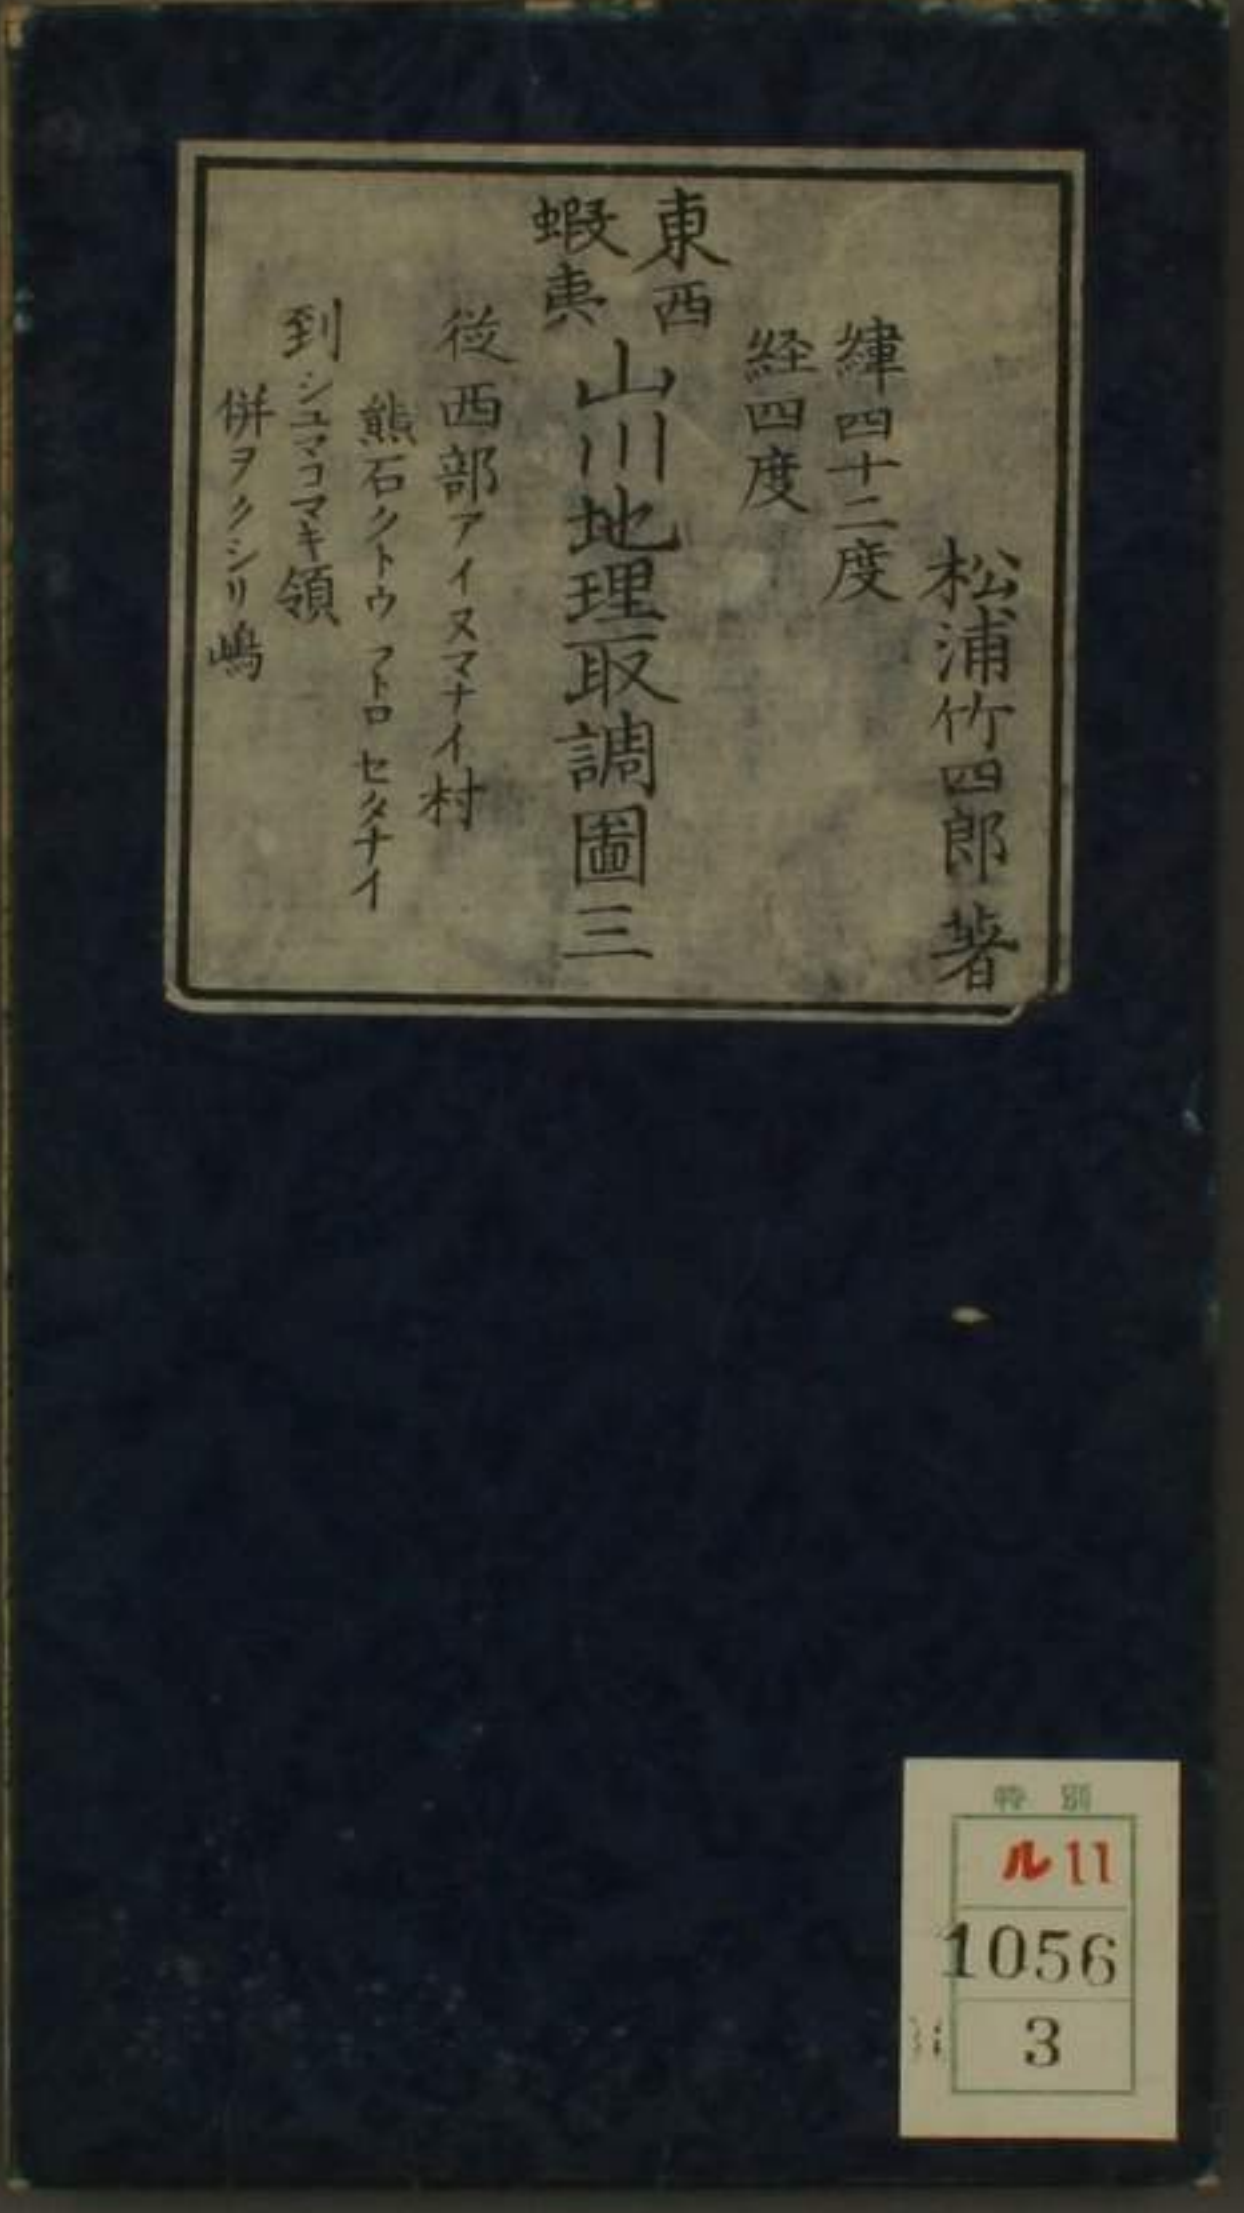 松浦竹四郎著
緯四十二度
経四度
東西
蝦夷
山川地理取調圖三
従西部アイヌマナイ村
熊石クトウ フトロ セタナイ
到シユマコマキ領
併ヲクシリ嶋
特別
ル11
1056
3